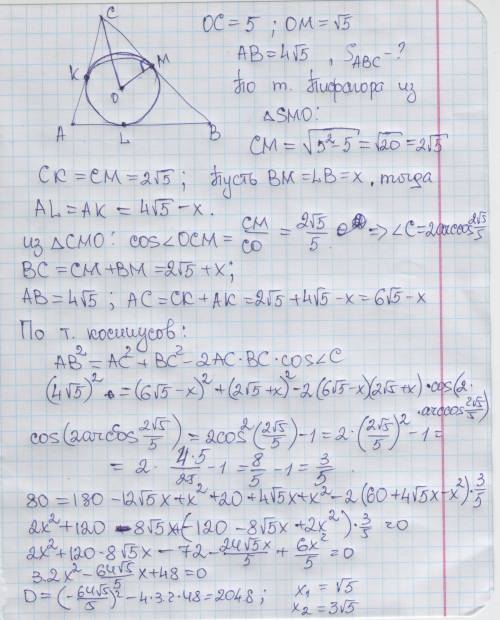 C
K
M
O
A
L
B
OC = 5 ; OM = √5
AB = 4√5 , S_ABC - ?
По т. Пифагора из
△SMO:
CM = √(5² - 5) = √20 = 2√5
CK = CM = 2√5 ; Пусть BM = LB = x, тогда
AL = AK = 4√5 - x.
из △CMO: cos∠OCM = CM/CO = 2√5/5 => ∠C = 2arccos 2√5/5
BC = CM + BM = 2√5 + x;
AB = 4√5 ; AC = CK + AK = 2√5 + 4√5 - x = 6√5 - x
По т. косинусов:
AB² = AC² + BC² - 2AC·BC·cos∠C
(4√5)² = (6√5 - x)² + (2√5 + x)² - 2(6√5 - x)(2√5 + x)·cos(2·
·arccos 2√5/5)
cos(2arccos 2√5/5) = 2cos²(2√5/5) - 1 = 2·(2√5/5)² - 1 =
= 2·4·5/25 - 1 = 8/5 - 1 = 3/5.
80 = 180 - 12√5x + x² + 20 + 4√5x + x² - 2(60 + 4√5x - x²)·3/5
2x² + 120 - 8√5x + (-120 - 8√5x + 2x²)·3/5 = 0
2x² + 120 - 8√5x - 72 - 24√5x/5 + 6x²/5 = 0
3.2x² - 64√5/5 x + 48 = 0
D = (-64√5/5)² - 4·3.2·48 = 2048 ; x₁ = √5
x₂ = 3√5